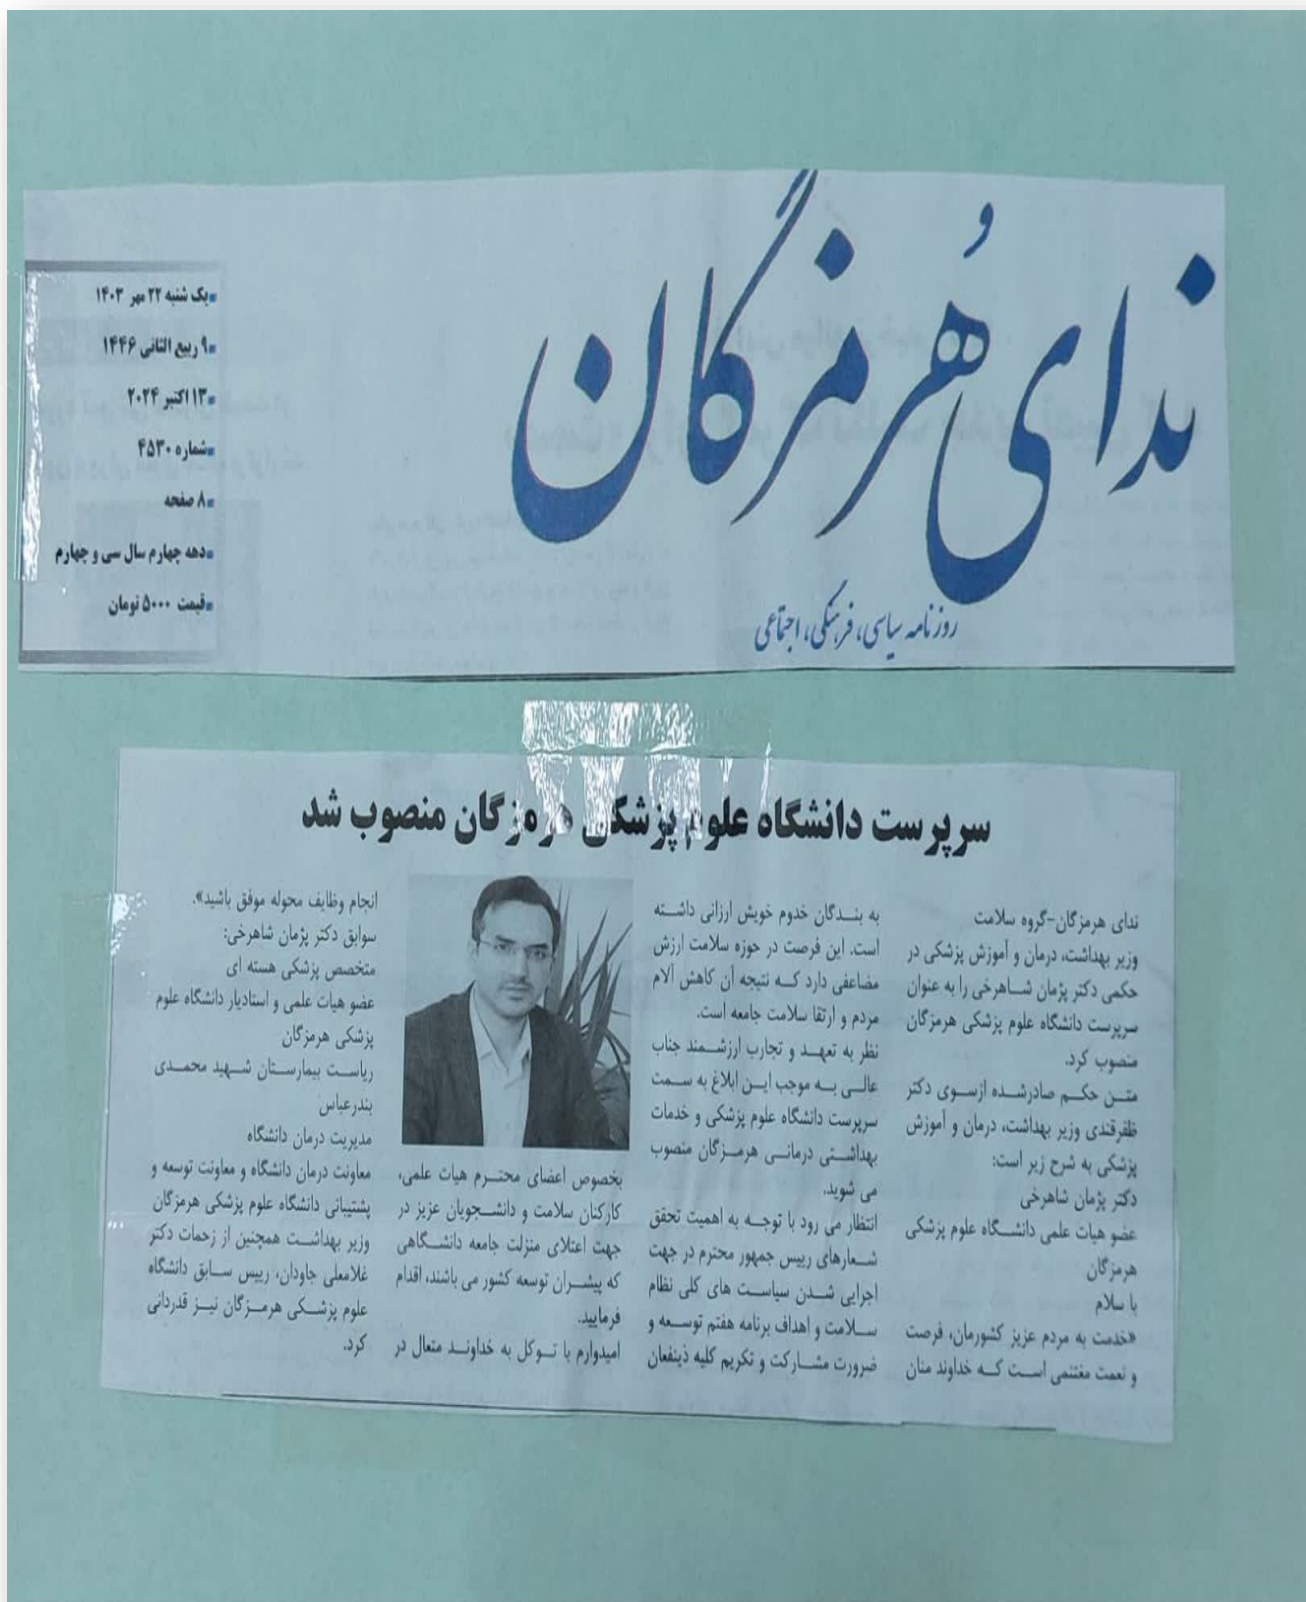 ندای هُرمزگان
روزنامه سیاسی، فرهنگی، اجتماعی
یک شنبه ۲۲ مهر ۱۴۰۳
۹ ربیع الثانی ۱۴۴۶
۱۳ اکتبر ۲۰۲۴
شماره ۴۵۳۰
۸ صفحه
دهه چهارم سال سی و چهارم
قیمت ۵۰۰۰ تومان
سرپرست دانشگاه علوم پزشکی هرمزگان منصوب شد
ندای هرمزگان-گروه سلامت
وزیر بهداشت، درمان و آموزش پزشکی در
حکمی دکتر پژمان شاهرخی را به عنوان
سرپرست دانشگاه علوم پزشکی هرمزگان
منصوب کرد.
متن حکم صادرشده ازسوی دکتر
ظفرقندی وزیر بهداشت، درمان و آموزش
پزشکی به شرح زیر است:
دکتر پژمان شاهرخی
عضو هیات علمی دانشگاه علوم پزشکی
هرمزگان
با سلام
«خدمت به مردم عزیز کشورمان، فرصت
و نعمت مغتنمی است که خداوند منان
به بندگان خدوم خویش ارزانی داشته
است. این فرصت در حوزه سلامت ارزش
مضاعفی دارد که نتیجه آن کاهش آلام
مردم و ارتقا سلامت جامعه است.
نظر به تعهد و تجارب ارزشمند جناب
عالی به موجب این ابلاغ به سمت
سرپرست دانشگاه علوم پزشکی و خدمات
بهداشتی درمانی هرمزگان منصوب
می شوید.
انتظار می رود با توجه به اهمیت تحقق
شعارهای رییس جمهور محترم در جهت
اجرایی شدن سیاست های کلی نظام
سلامت و اهداف برنامه هفتم توسعه و
ضرورت مشارکت و تکریم کلیه ذینفعان
بخصوص اعضای محترم هیات علمی،
کارکنان سلامت و دانشجویان عزیز در
جهت اعتلای منزلت جامعه دانشگاهی
که پیشران توسعه کشور می باشند، اقدام
فرمایید.
امیدوارم با توکل به خداوند متعال در
انجام وظایف محوله موفق باشید».
سوابق دکتر پژمان شاهرخی:
متخصص پزشکی هسته ای
عضو هیات علمی و استادیار دانشگاه علوم
پزشکی هرمزگان
ریاست بیمارستان شهید محمدی
بندرعباس
مدیریت درمان دانشگاه
معاونت درمان دانشگاه و معاونت توسعه و
پشتیبانی دانشگاه علوم پزشکی هرمزگان
وزیر بهداشت همچنین از زحمات دکتر
غلامعلی جاودان، رییس سابق دانشگاه
علوم پزشکی هرمزگان نیز قدردانی
کرد.